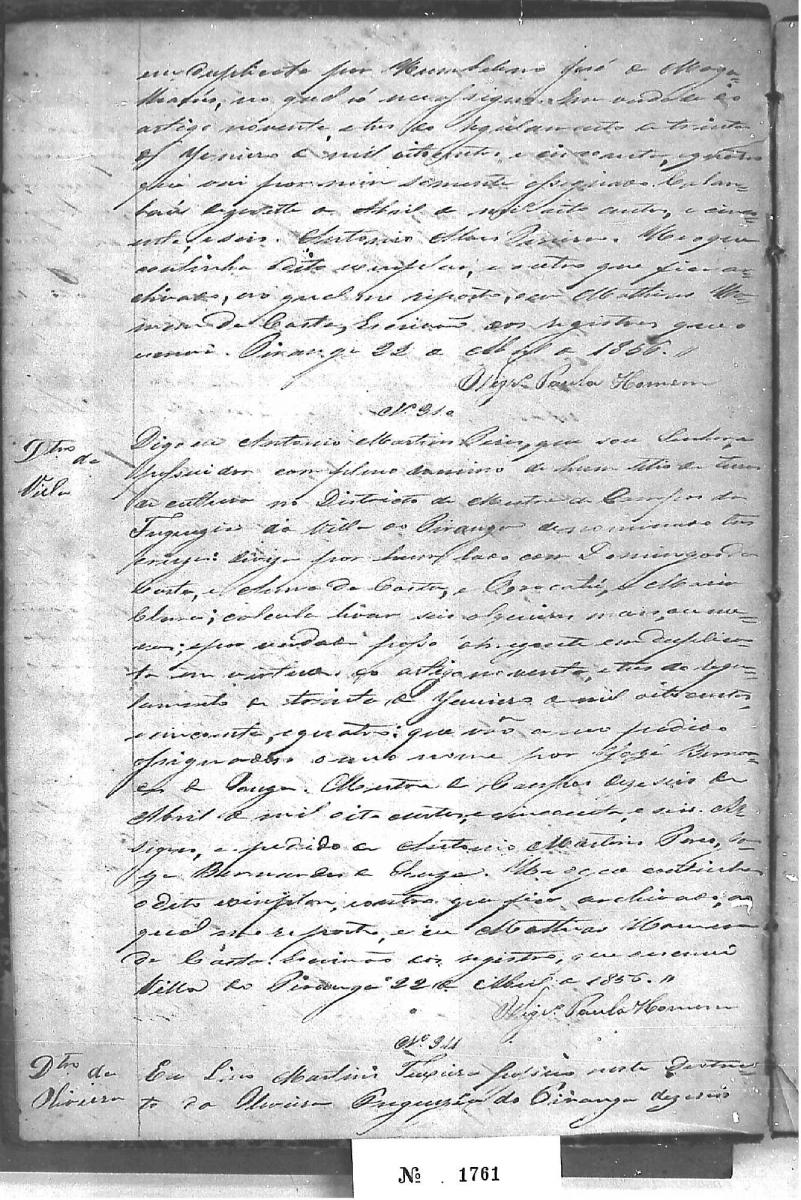 em duplicata por José de Maga-
no qual só me assigno. Em virtude do
artigo noventa, e tres do regulamento de trinta
de Janeiro de mil oito centos, e cincoenta, e quatro
que vai por mim somente assignado.
de Abril de mil oito centos, e cinco-
enta, e seis. Antonio Pereira. He o que
continha dito exemplar, e outro que fica ar-
chivado, ao qual me reporto, e eu Mathias Ho-
mem da Costa, Escrivão dos registros que o
escrevi. Piranga 22 de Abril de 1856.
Vigr.º Paula Homem
Nº 310
Dtro da
Villa
Digo eu Antonio Martins Pires, que sou Senhor, e
possuidor com pleno dominio de hum sitio de terras
de cultura no Districto de Mestre de Campos da
Freguezia da Villa do Piranga denominado
divisa por hum lado com Domingos da
Costa, e Anna da Costa, e Maria
calcula levar seis alqueires mais, ou me-
nos; e por verdade passo o presente em duplica-
ta em virtude do artigo noventa, e tres do regu-
lamento de trinta de Janeiro de mil oito centos,
e cincoenta, e quatro: que vão a meu pedido
assignados o meu nome por José Bernar-
des de Souza. Mestre de Campos dezeseis de
Abril de mil oito centos, e cincoenta, e seis. As-
signo, a pedido de Antonio Martins Pires, Jo-
ze Bernardes de Souza. He o que continha
o dito exemplar, e outro que fica archivado, ao
qual me reporto, e eu Mathias Homem
da Costa Escrivão dos registros, que escrevi
Villa do Piranga 22 de Abril de 1856.
Vigr.º Paula Homem
Nº 311
Dtro da
Oliveira
Eu Lino Martins Teixeira possuo neste Destric-
to da Oliveira Freguezia do Piranga dezeseis
Nº 1761